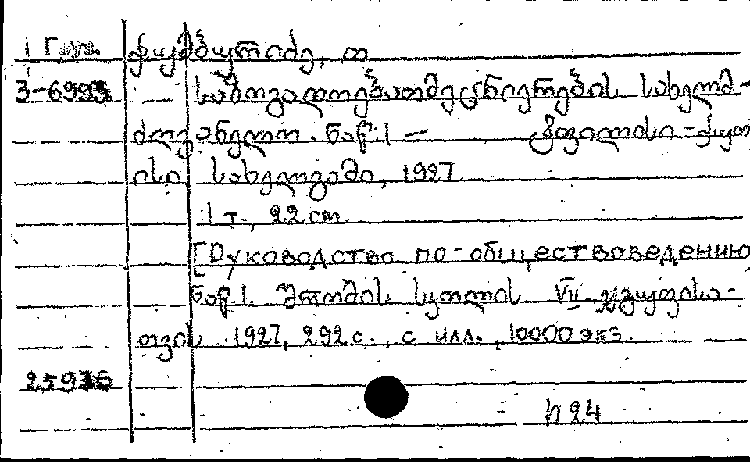 1 Гпб. ქუმბურიძე, თ
3-6993 — საზოგადოებათმეცნიერების სახელმ-
ძღვანელო. ნაწ. 1 — ტფილისი - ქუთა
ისი, სახელგამი, 1927
1 т., 22 cm
[Руководство по обществоведению
ნაწ. 1. შრომის სკოლის VII ჯგუფისა-
თვის 1927, 292 с., с илл., 10000 экз.
25936
n 24